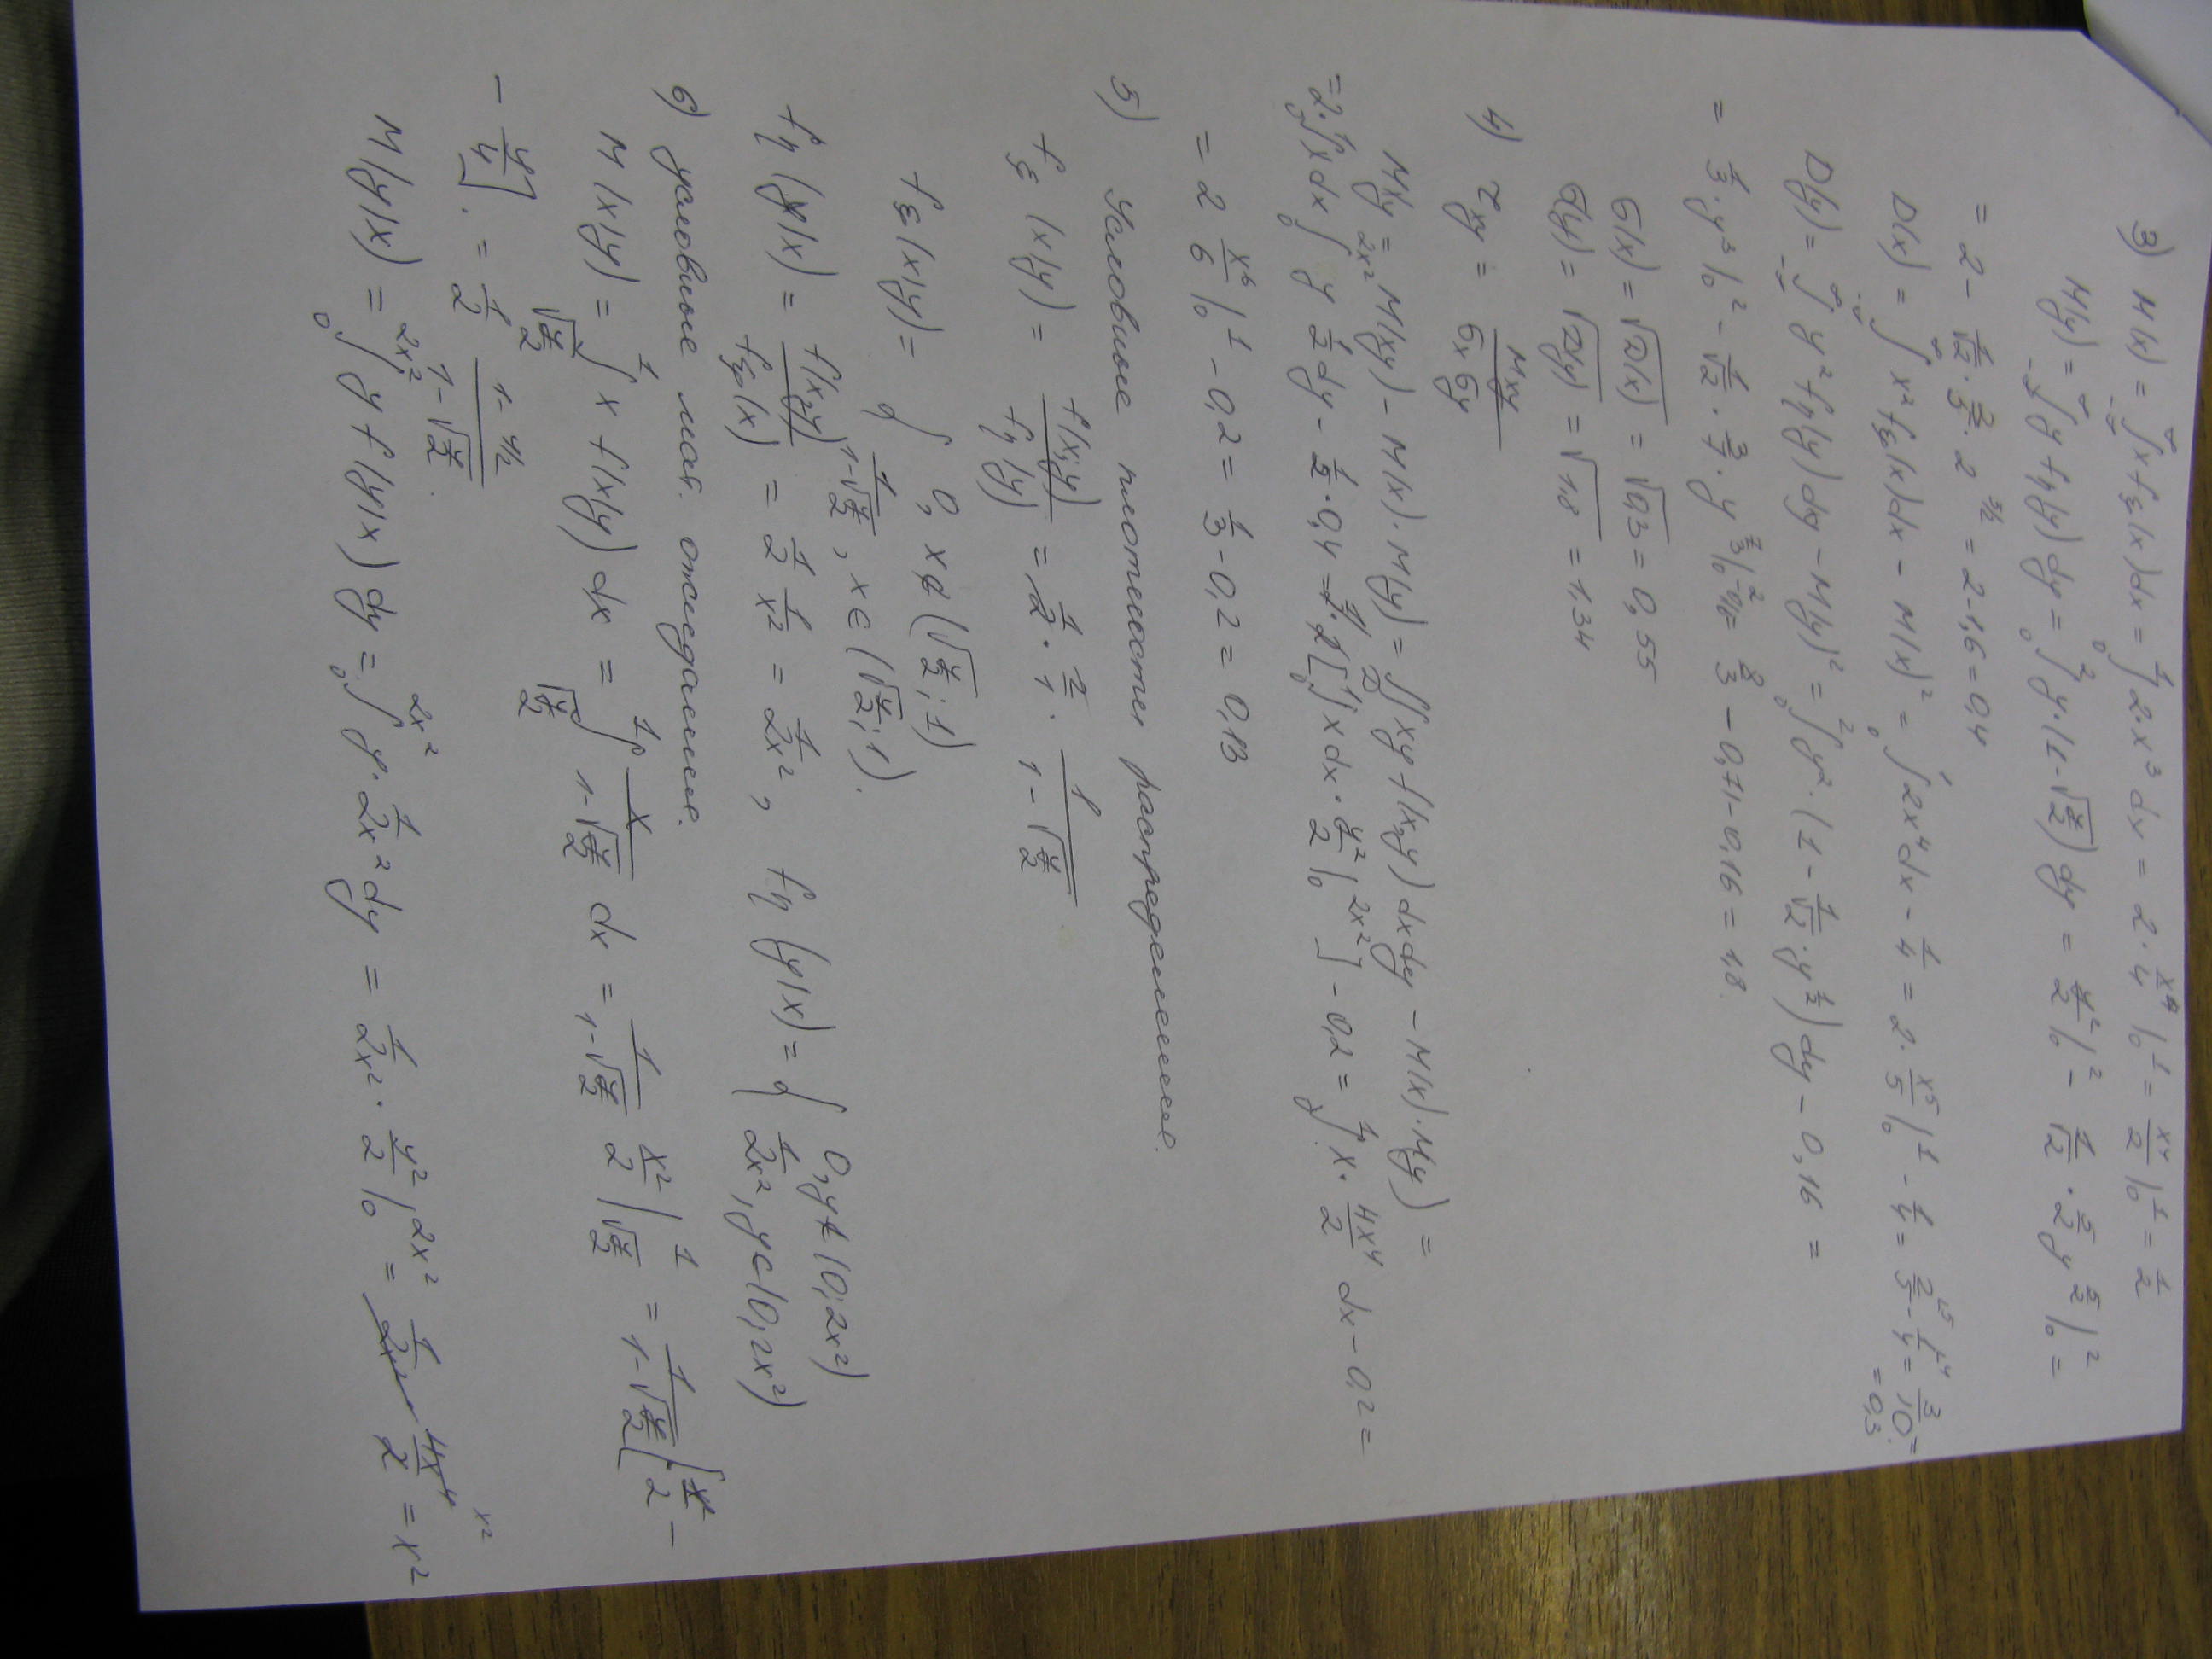 3) M(x) = ∫_{-∞}^{∞} x f_ξ(x) dx = ∫_0^1 2·x³ dx = 2·x⁴/4 |_0^1 = x⁴/2 |_0^1 = 1/2
M(y) = ∫_{-∞}^{∞} y f_η(y) dy = ∫_0^2 y·(1-√(y/2)) dy = y²/2 |_0^2 - 1/√2 · 5/2 y^{5/2} |_0^2 =
= 2 - 1/√2 · 2/5 · 2^{5/2} = 2-1,6 = 0,4
D(x) = ∫_{-∞}^{∞} x² f_ξ(x) dx - M(x)² = ∫_0^1 2x⁴ dx - 1/4 = 2·x⁵/5 |_0^1 - 1/4 = 2/5 - 1/4 = 3/10 =
= 0,3
D(y) = ∫_{-∞}^{∞} y² f_η(y) dy - M(y)² = ∫_0^2 y²·(1 - 1/√2 · y^{1/2}) dy - 0,16 =
= 1/3 · y³ |_0^2 - 1/√2 · 2/7 · y^{7/2} |_0^2 - 0,16 = 8/3 - 0,71 - 0,16 = 1,8.
σ(x) = √D(x) = √0,3 = 0,55
σ(y) = √D(y) = √1,8 = 1,34
4) r_xy = Mxy / σx σy
Mxy = M(xy) - M(x)·M(y) = ∫∫_D xy f(x,y) dxdy - M(x)·M(y) =
= 2·∫_0^1 x dx ∫_0^{2x²} y 1/2 dy - 1/2 · 0,4 = [∫_0^1 x dx · y²/2 |_0^{2x²}] - 0,2 = ∫_0^1 x · 4x⁴/2 dx - 0,2 =
= 2 x⁶/6 |_0^1 - 0,2 = 1/3 - 0,2 = 0,13
5) Условные плотности распределения.
f_ξ(x|y) = f(x,y)/f_η(y) = 1/2 · 2/1 · 1/(1-√(y/2)).
f_ξ(x|y) = { 0, x∉(√(y/2); 1)
1/(1-√(y/2)), x∈(√(y/2); 1).
f_η(y|x) = f(x,y)/f_ξ(x) = 1/2 1/x² = 1/2x², f_η(y|x) = { 0, y∉(0; 2x²)
1/2x², y∈(0; 2x²)
6) условные мат. ожидание.
M(x|y) = ∫_{√(y/2)}^1 x f(x|y) dx = ∫_{√(y/2)}^1 x/(1-√(y/2)) dx = 1/(1-√(y/2)) x²/2 |_{√(y/2)}^1 = 1/(1-√(y/2)) · [1/2 -
- y/4]. = 1/2 (1-y/2)/(1-√(y/2)).
M(y|x) = ∫_0^{2x²} y f(y|x) dy = ∫_0^{2x²} y · 1/2x² dy = 1/2x² · y²/2 |_0^{2x²} = 1/2x² · 4x⁴/2 = x²